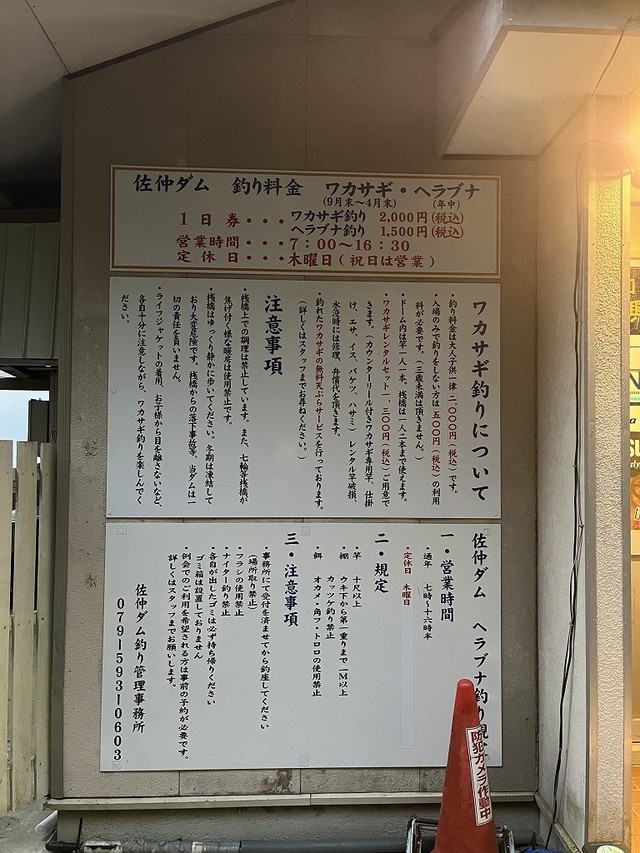 佐仲ダム 釣り料金 ワカサギ・ヘラブナ
(9月末〜4月末) (年中)
1日券・・・ワカサギ釣り 2,000円(税込)
ヘラブナ釣り 1,500円(税込)
営業時間・・・7:00〜16:30
定休日・・・木曜日(祝日は営業)
ワカサギ釣りについて
・釣り料金は大人子供一律 二,〇〇〇円(税込)です。
・入場のみで釣りをしない方は 五〇〇円(税込)の利用
料が必要です。(三歳未満は頂きません)
・ドーム内は竿一人一本、桟橋は一人二本まで使えます。
・ワカサギレンタルセット一,三〇〇円(税込)ご用意で
きます。(カウンターリール付きワカサギ専用竿、仕掛
け、エサ、イス、バケツ、ハサミ)レンタル竿破損、
水没時には修理、弁償代を頂きます。
・釣れたワカサギの無料天ぷらサービスを行っております。
(詳しくはスタッフまでお尋ねください。)
注意事項
・桟橋上での調理は禁止しています。また、七輪等桟橋が
焦げ付く様な暖房は使用禁止です。
・桟橋はゆっくり静かに歩いてください。冬期は凍結して
おり大変危険です。桟橋からの落下事故等、当ダムは一
切の責任を負いません。
・ライフジャケットの着用、お子様から目を離さないなど、
各自十分に注意しながら、ワカサギ釣りを楽しんでく
ださい。
佐仲ダム ヘラブナ釣り規
一・営業時間
・通年 七時〜十六時半
・定休日 木曜日
二・規定
・竿 十尺以上
・棚 ウキ下から第一重りまで一M以上
カッツケ釣り禁止
・餌 オカメ・角フ・トロロの使用禁止
三・注意事項
・事務所にて受付を済ませてから釣座してください
(場所取り禁止)
・フラシの使用禁止
・ナイター釣り禁止
・各自が出したゴミは必ず持ち帰りください
ゴミ箱は設置しておりません
・例会でのご利用を希望される方は事前の予約が必要です。
詳しくはスタッフまでお願いします。
佐仲ダム釣り管理事務所
079-593-0603
防犯カメラ作動中